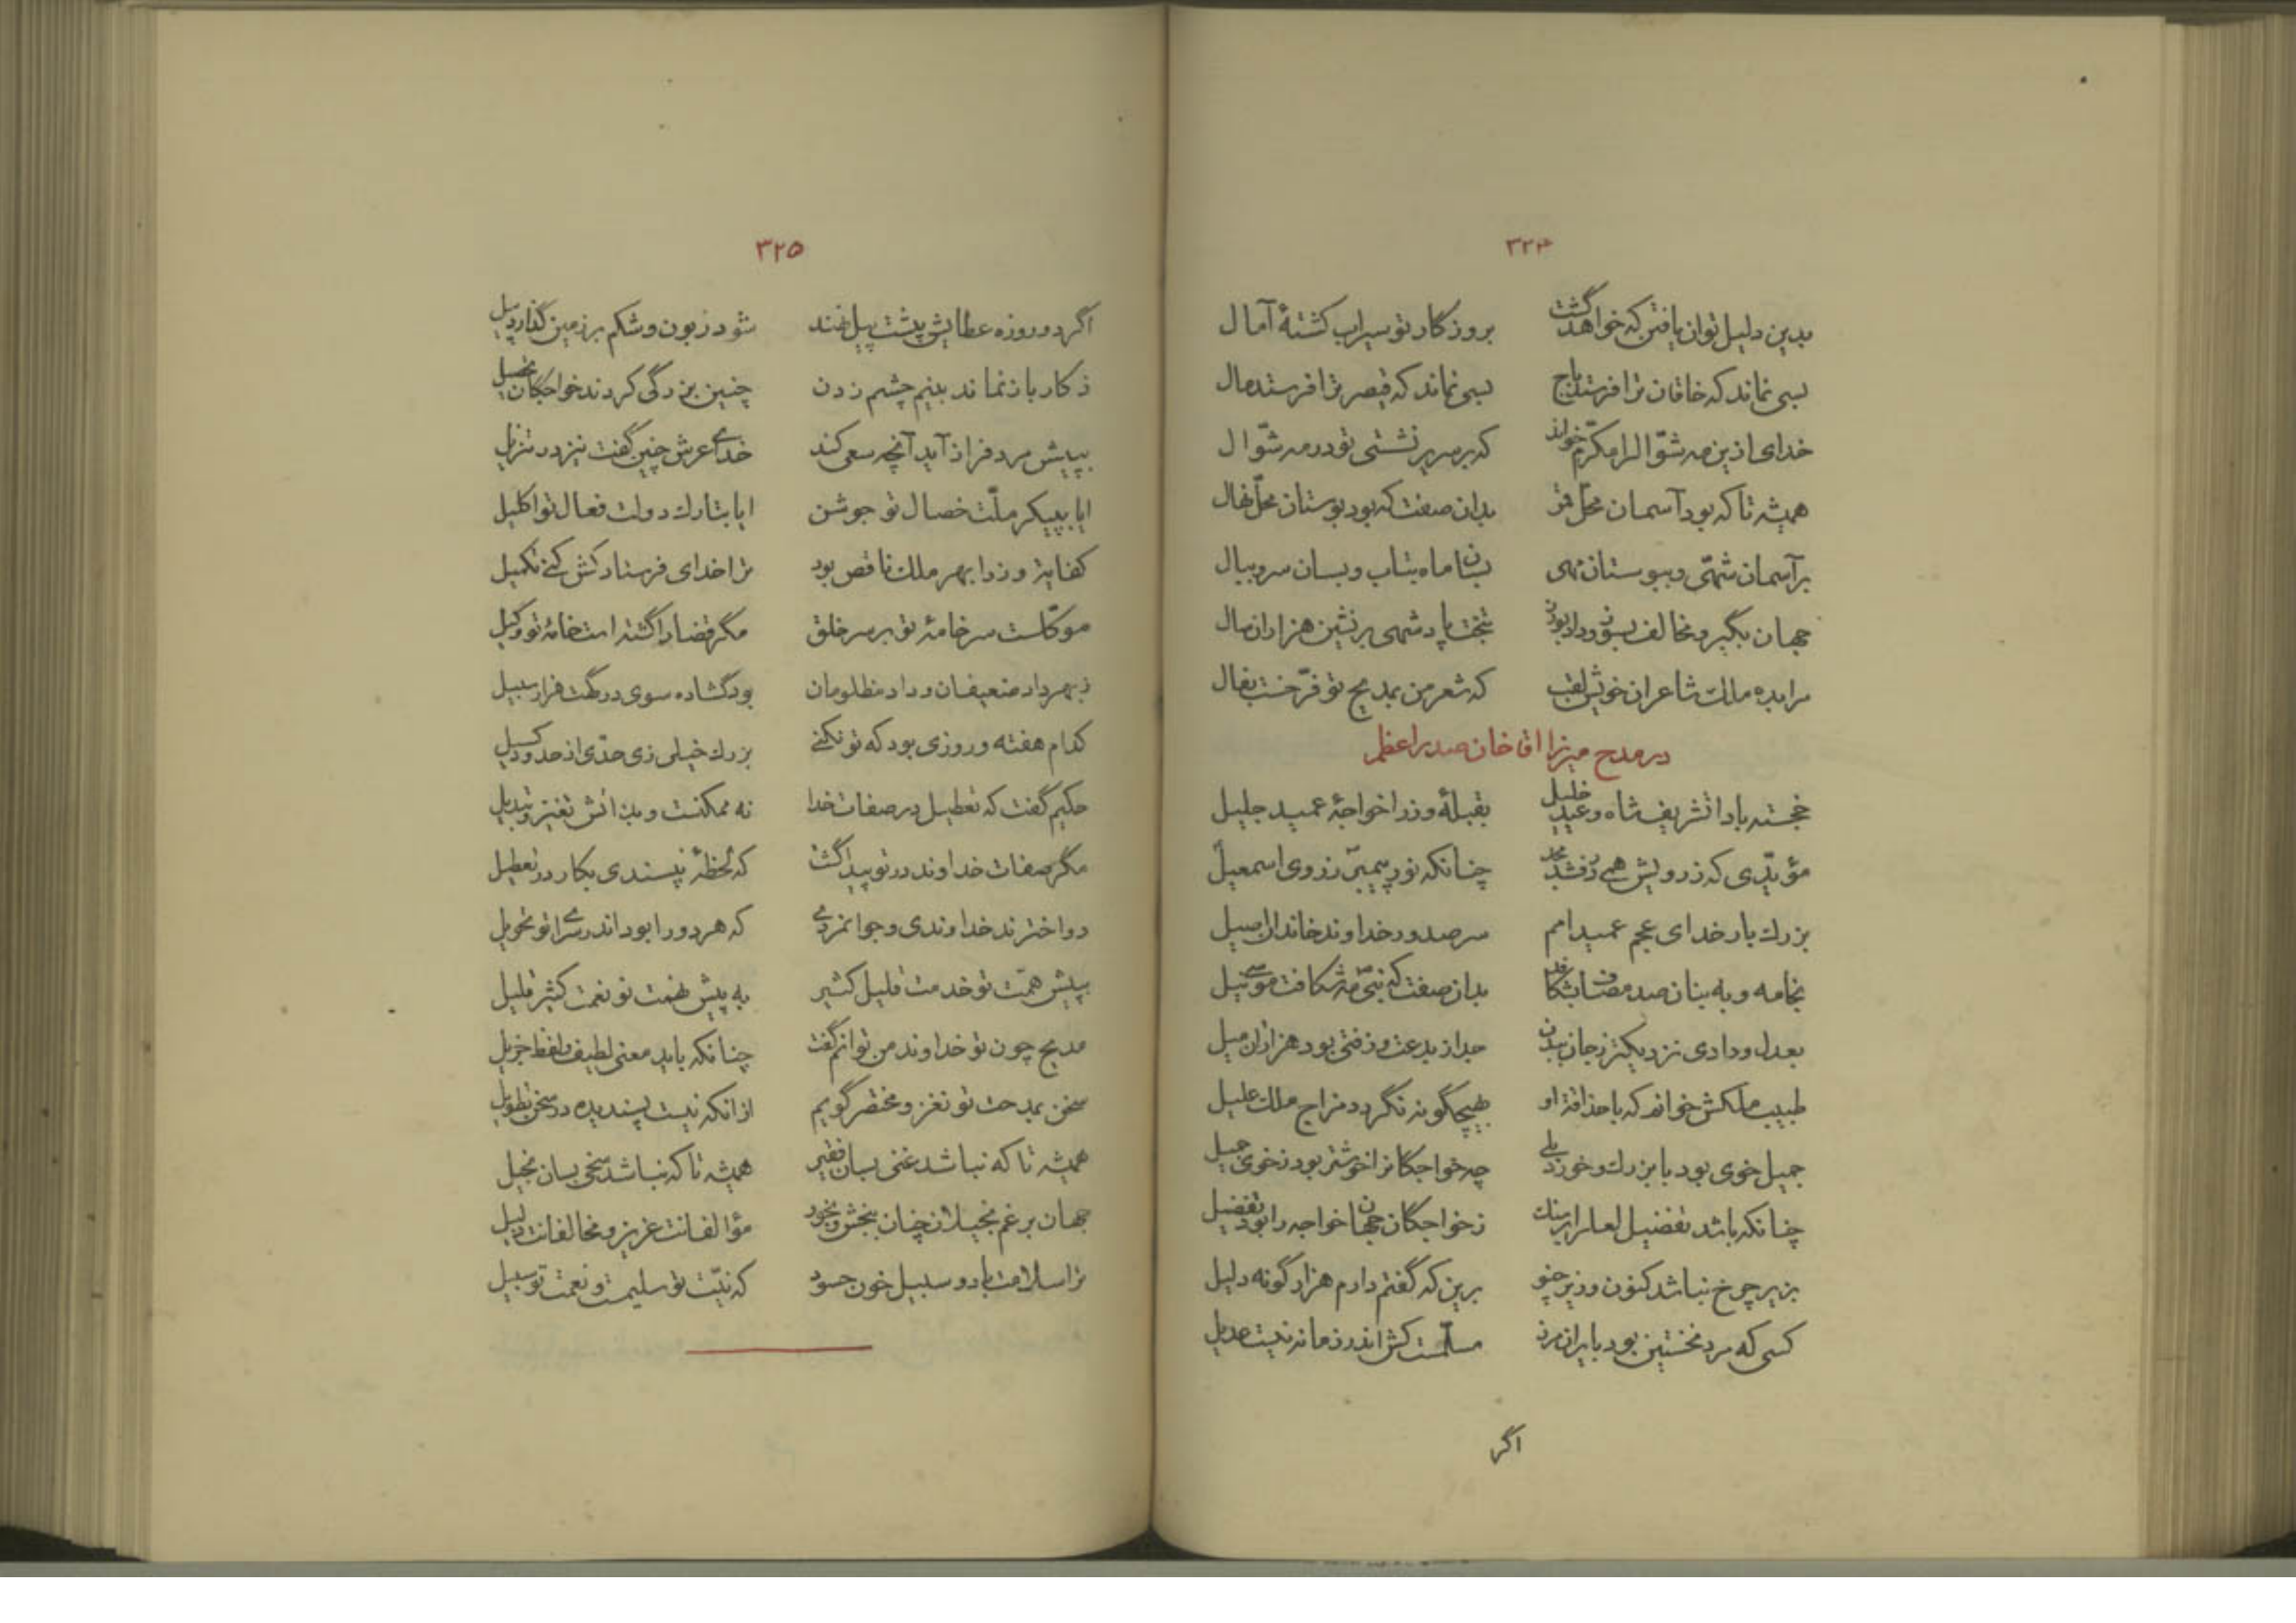 ۳۲۴
بدین دلیل توان یافتن که خواهد گشت بروزگار تو سیراب کشتهٔ آمال
بسی نماند که خاقان ترا فرستد باج بسی نماند که قیصر ترا فرستد مال
خدای ازین مه شوّال را مکرّم خواند که بر سریر نشستی تو در مه شوّال
همیشه تا که بود آسمان محلّ قمر بدان صفت که بود بوستان محلّ نهال
بر آسمان شهی و ببوستان مهی بسان ماه بتاب و بسان سرو ببال
جهان بگیر و مخالف بسوز و داد بورز بتخت پادشهی بر نشین هزاران سال
مرا بده ملک شاعران خویش لقب که شعر من بمدیح تو فرّخست بفال
در مدح میرزا اقا خان صدر اعظم
خجسته بادا تشریف شاه و عید خلیل بقبلهٔ وزرا خواجهٔ عمید جلیل
مؤیّدی که ز رویش همی درفشد مجد چنانکه نور پیمبر ز روی اسمعیل
بزرك بار خدای عجم عمید امم سر صدور خداوند خاندان اصیل
بخامه و به بنان صد مصاف بشکافد بدان صفت که بنی مه شکافت موسی نیل
بعدل و دادی نزدیکتر ز جان ببدن جدا ز بدعت و زفتی بود هزاران میل
طبیب ملکش خوانم که با حذاقة او بهیچگونه نگردد مزاج ملك علیل
جمیل خوی بود با بزرك و خورد بلی چه خواجگانرا خوشتر بود ز خوی جمیل
چنانکه باشد تفضیل لعل را بر سنك ز خواجگان جهان خواجه را بود تفضیل
بزیر چرخ نباشد کنون وزیر چنو برین که گفتم دارم هزار گونه دلیل
کسی که مرد نخستین بود بایران مرز مسلّمست کش اندر زمانه نیست عدیل
اگر
۳۲۵
اگر دو روزه عطایش بپشت پیل نهند شود زبون و شکم بر زمین گذارد پیل
ز کار باز نماند بنیم چشم زدن چنین بزرگی کردند خواجگان تحصیل
بپیش مرد فراز آید آنچه سعی کند خدای عرش چنین گفت نیز در تنزیل
ایا بپیکر ملّت خصال تو جوشن ایا بتارك دولت فعال تو اکلیل
کفایة وزرا بهر ملك ناقص بود ترا خدای فرستاد کش کنی تکمیل
موکّلست سر خامهٔ تو بر سر خلق مگر قضا را گشته است خامهٔ تو وکیل
ز بهر داد ضعیفان و داد مظلومان بود گشاده سوی درگهت هزار سبیل
کدام هفته و روزی بود که تو نکنی بزرك خیلی زی حدّی از حدود گسیل
حکیم گفت که تعطیل در صفات خدا نه ممکنست و بذاتش تغیّر و تبدیل
مگر صفات خداوند در تو پیدا گشت که لحظهٔ نپسندی بکار در تعطیل
دو اخترند خداوندی و جوانمردی که هر دو را بود اندر سرای تو تحویل
بپیش همّت تو خدمت قلیل کثیر به پیش نهمت تو نعمت کثیر قلیل
مدیح چون تو خداوند من توانم گفت چنانکه باید معنی لطیف و لفظ جزیل
سخن بمدحت تو نغز و مختصر گویم از آنکه نیست پسندیده در سخن تطویل
همیشه تا که نباشد غنی بسان فقیر همیشه تا که نباشد سخی بسان بخیل
جهان برغم بخیلان چنان ببخش و بخور مؤالفانت عزیز و مخالفانت ذلیل
ترا سلامت باد و سبیل خون حسود که نیّت تو سلیمست و نعمت تو سبیل